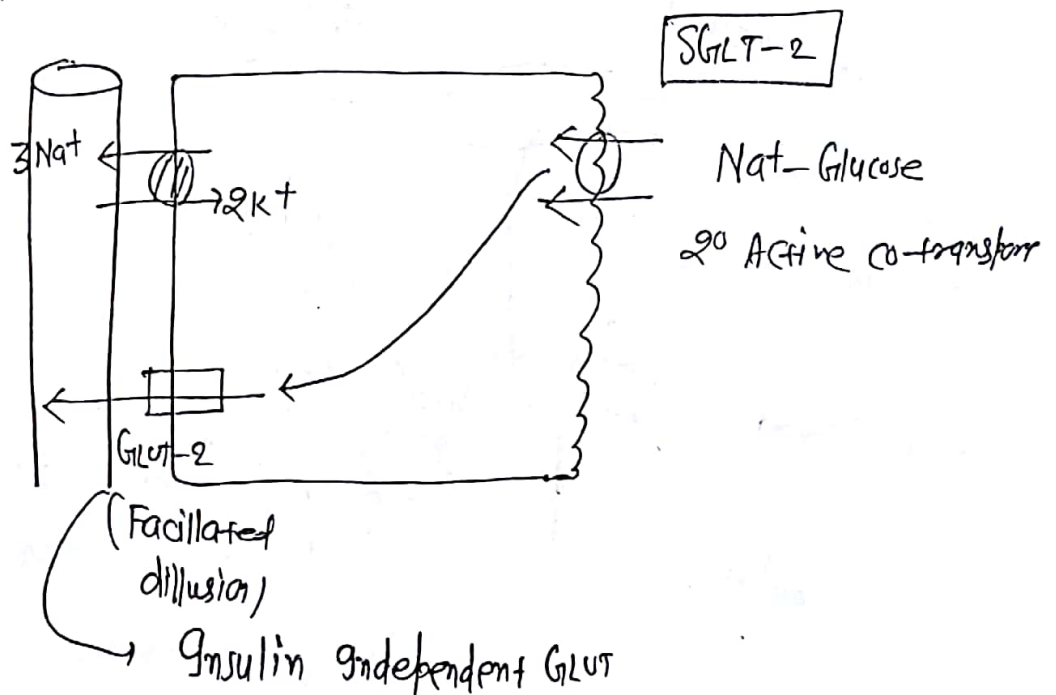 SGLT-2
3 Na+
2K+
Na+- Glucose
2° Active co-transport
GLUT-2
(Facillated
dillusion)
Insulin Independent GLUT